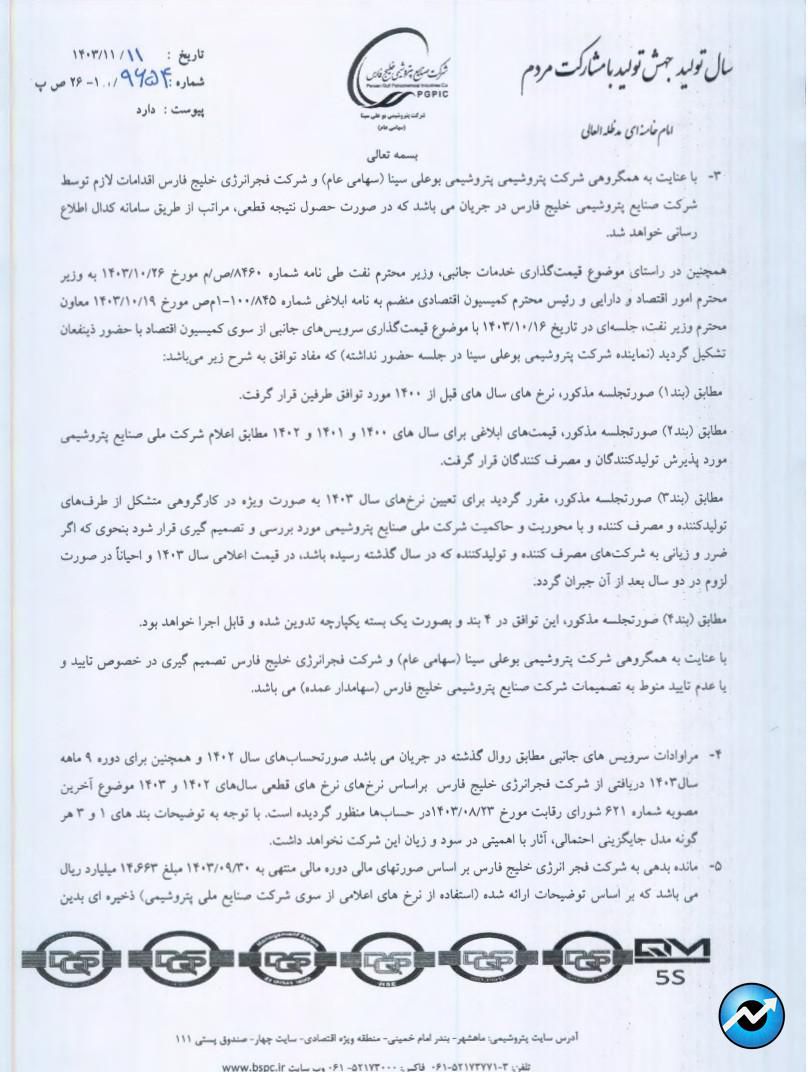 سال تولید جهش تولید با مشارکت مردم
امام خامنه‌ای مدظله العالی
شرکت صنایع پتروشیمی خلیج فارس
Persian Gulf Petrochemical Industries Co
PGPIC
شرکت پتروشیمی بو علی سینا
(سهامی عام)
تاریخ : ۱۴۰۳/۱۱/۱۱
شماره : ۹۶۵۴/۱۰۰-۲۶ ص پ
پیوست : دارد
بسمه تعالی
۳- با عنایت به همگروهی شرکت پتروشیمی پتروشیمی بوعلی سینا (سهامی عام) و شرکت فجرانرژی خلیج فارس اقدامات لازم توسط
شرکت صنایع پتروشیمی خلیج فارس در جریان می باشد که در صورت حصول نتیجه قطعی، مراتب از طریق سامانه کدال اطلاع
رسانی خواهد شد.
همچنین در راستای موضوع قیمت‌گذاری خدمات جانبی، وزیر محترم نفت طی نامه شماره ۸۴۶۰/ص/م مورخ ۱۴۰۳/۱۰/۲۶ به وزیر
محترم امور اقتصاد و دارایی و رئیس محترم کمیسیون اقتصادی منضم به نامه ابلاغی شماره ۱۰۰/۸۴۵-۱م‌ص مورخ ۱۴۰۳/۱۰/۱۹ معاون
محترم وزیر نفت، جلسه‌ای در تاریخ ۱۴۰۳/۱۰/۱۶ با موضوع قیمت‌گذاری سرویس‌های جانبی از سوی کمیسیون اقتصاد با حضور ذینفعان
تشکیل گردید (نماینده شرکت پتروشیمی بوعلی سینا در جلسه حضور نداشته) که مفاد توافق به شرح زیر می‌باشد:
مطابق (بند۱) صورتجلسه مذکور، نرخ های سال های قبل از ۱۴۰۰ مورد توافق طرفین قرار گرفت.
مطابق (بند۲) صورتجلسه مذکور، قیمت‌های ابلاغی برای سال های ۱۴۰۰ و ۱۴۰۱ و ۱۴۰۲ مطابق اعلام شرکت ملی صنایع پتروشیمی
مورد پذیرش تولیدکنندگان و مصرف کنندگان قرار گرفت.
مطابق (بند۳) صورتجلسه مذکور، مقرر گردید برای تعیین نرخ‌های سال ۱۴۰۳ به صورت ویژه در کارگروهی متشکل از طرف‌های
تولیدکننده و مصرف کننده و با محوریت و حاکمیت شرکت ملی صنایع پتروشیمی مورد بررسی و تصمیم گیری قرار شود بنحوی که اگر
ضرر و زیانی به شرکت‌های مصرف کننده و تولیدکننده که در سال گذشته رسیده باشد، در قیمت اعلامی سال ۱۴۰۳ و احیاناً در صورت
لزوم در دو سال بعد از آن جبران گردد.
مطابق (بند۴) صورتجلسه مذکور، این توافق در ۴ بند و بصورت یک بسته یکپارچه تدوین شده و قابل اجرا خواهد بود.
با عنایت به همگروهی شرکت پتروشیمی بوعلی سینا (سهامی عام) و شرکت فجرانرژی خلیج فارس تصمیم گیری در خصوص تایید و
یا عدم تایید منوط به تصمیمات شرکت صنایع پتروشیمی خلیج فارس (سهامدار عمده) می باشد.
۴- مراوادات سرویس های جانبی مطابق روال گذشته در جریان می باشد صورتحساب‌های سال ۱۴۰۲ و همچنین برای دوره ۹ ماهه
سال۱۴۰۳ دریافتی از شرکت فجرانرژی خلیج فارس براساس نرخ‌های نرخ های قطعی سال‌های ۱۴۰۲ و ۱۴۰۳ موضوع آخرین
مصوبه شماره ۶۲۱ شورای رقابت مورخ ۱۴۰۳/۰۸/۲۳در حساب‌ها منظور گردیده است. با توجه به توضیحات بند های ۱ و ۳ هر
گونه مدل جایگزینی احتمالی، آثار با اهمیتی در سود و زیان این شرکت نخواهد داشت.
۵- مانده بدهی به شرکت فجر انرژی خلیج فارس بر اساس صورتهای مالی دوره مالی منتهی به ۱۴۰۳/۰۹/۳۰ مبلغ ۱۴،۶۶۳ میلیارد ریال
می باشد که بر اساس توضیحات ارائه شده (استفاده از نرخ های اعلامی از سوی شرکت صنایع ملی پتروشیمی) ذخیره ای بدین
DQS DQS DQS DQS DQS DQS QM
Management System
HSE
5S
آدرس سایت پتروشیمی: ماهشهر- بندر امام خمینی- منطقه ویژه اقتصادی- سایت چهار- صندوق پستی ۱۱۱
تلفن: ۳-۵۲۱۷۳۷۷۱-۰۶۱ فاکس: ۵۲۱۷۳۰۰۰-۰۶۱ وب سایت www.bspc.ir